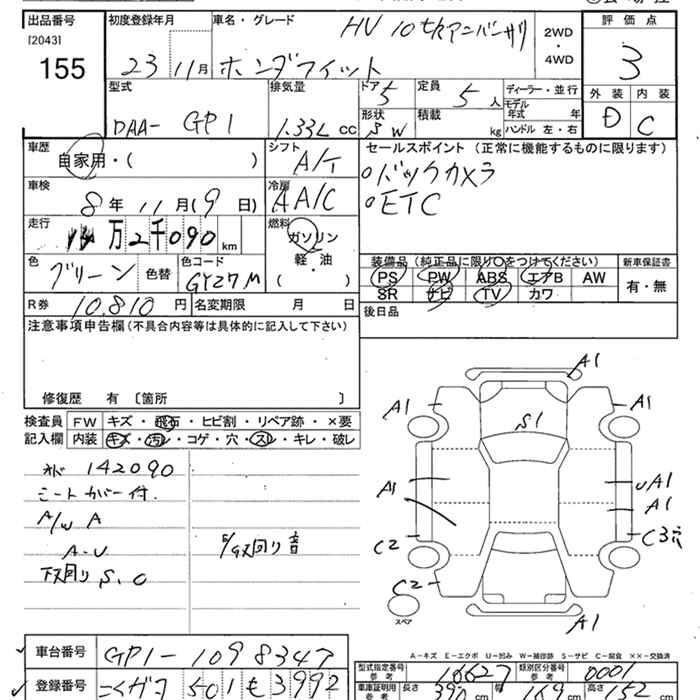 出品番号 初度登録年月 車名・グレード HV 10thアニバーサリ 2WD・4WD 評価点
[2043]
155 23 11月 ホンダフィット 3
型式 排気量 ドア 5 定員 5人 ディーラー・並行 外装 内装
DAA- GP1 1.33L cc 形状 SW 積載 kg モデル年式 年 D C
ハンドル 左・右
車歴 シフト セールスポイント (正常に機能するものに限ります)
自家用・( ) A/T バックカメラ
車検 冷房 ETC
8年 11月(9日) AA/C
走行 万2千090km 燃料
ガソリン
軽・油
( ・ )
装備品(純正品に限り○をつけてください) 新車保証書
色 グリーン 色替 色コード GY27M PS PW ABS エアB AW 有・無
SR ナビ TV カワ
R券 10.810円 名変期限 月 日 後日品
注意事項申告欄(不具合内容等は具体的に記入して下さい)
修復歴 有 〔箇所 〕
検査員 FW キズ・飛石・ヒビ割・リペア跡・×要
記入欄 内装 キズ・汚レ・コゲ・穴・スレ・キレ・破レ
142090
シートカバー付.
A/W A
A-U
下廻り S.O
廻り音
A1
A1 A1
S1
A1 UA1
A1
C2 C3穴
C2
スペア
A1
A-キズ E-エクボ U-凹み W-補修跡 S-サビ C-腐食 ××-交換済
車台番号 GP1-1098347
型式指定番号 参考 16627 類別区分番号 参考 0001
登録番号 501 も 3992
車庫証明用 参考 長さ 390cm 幅 169cm 高さ 152cm